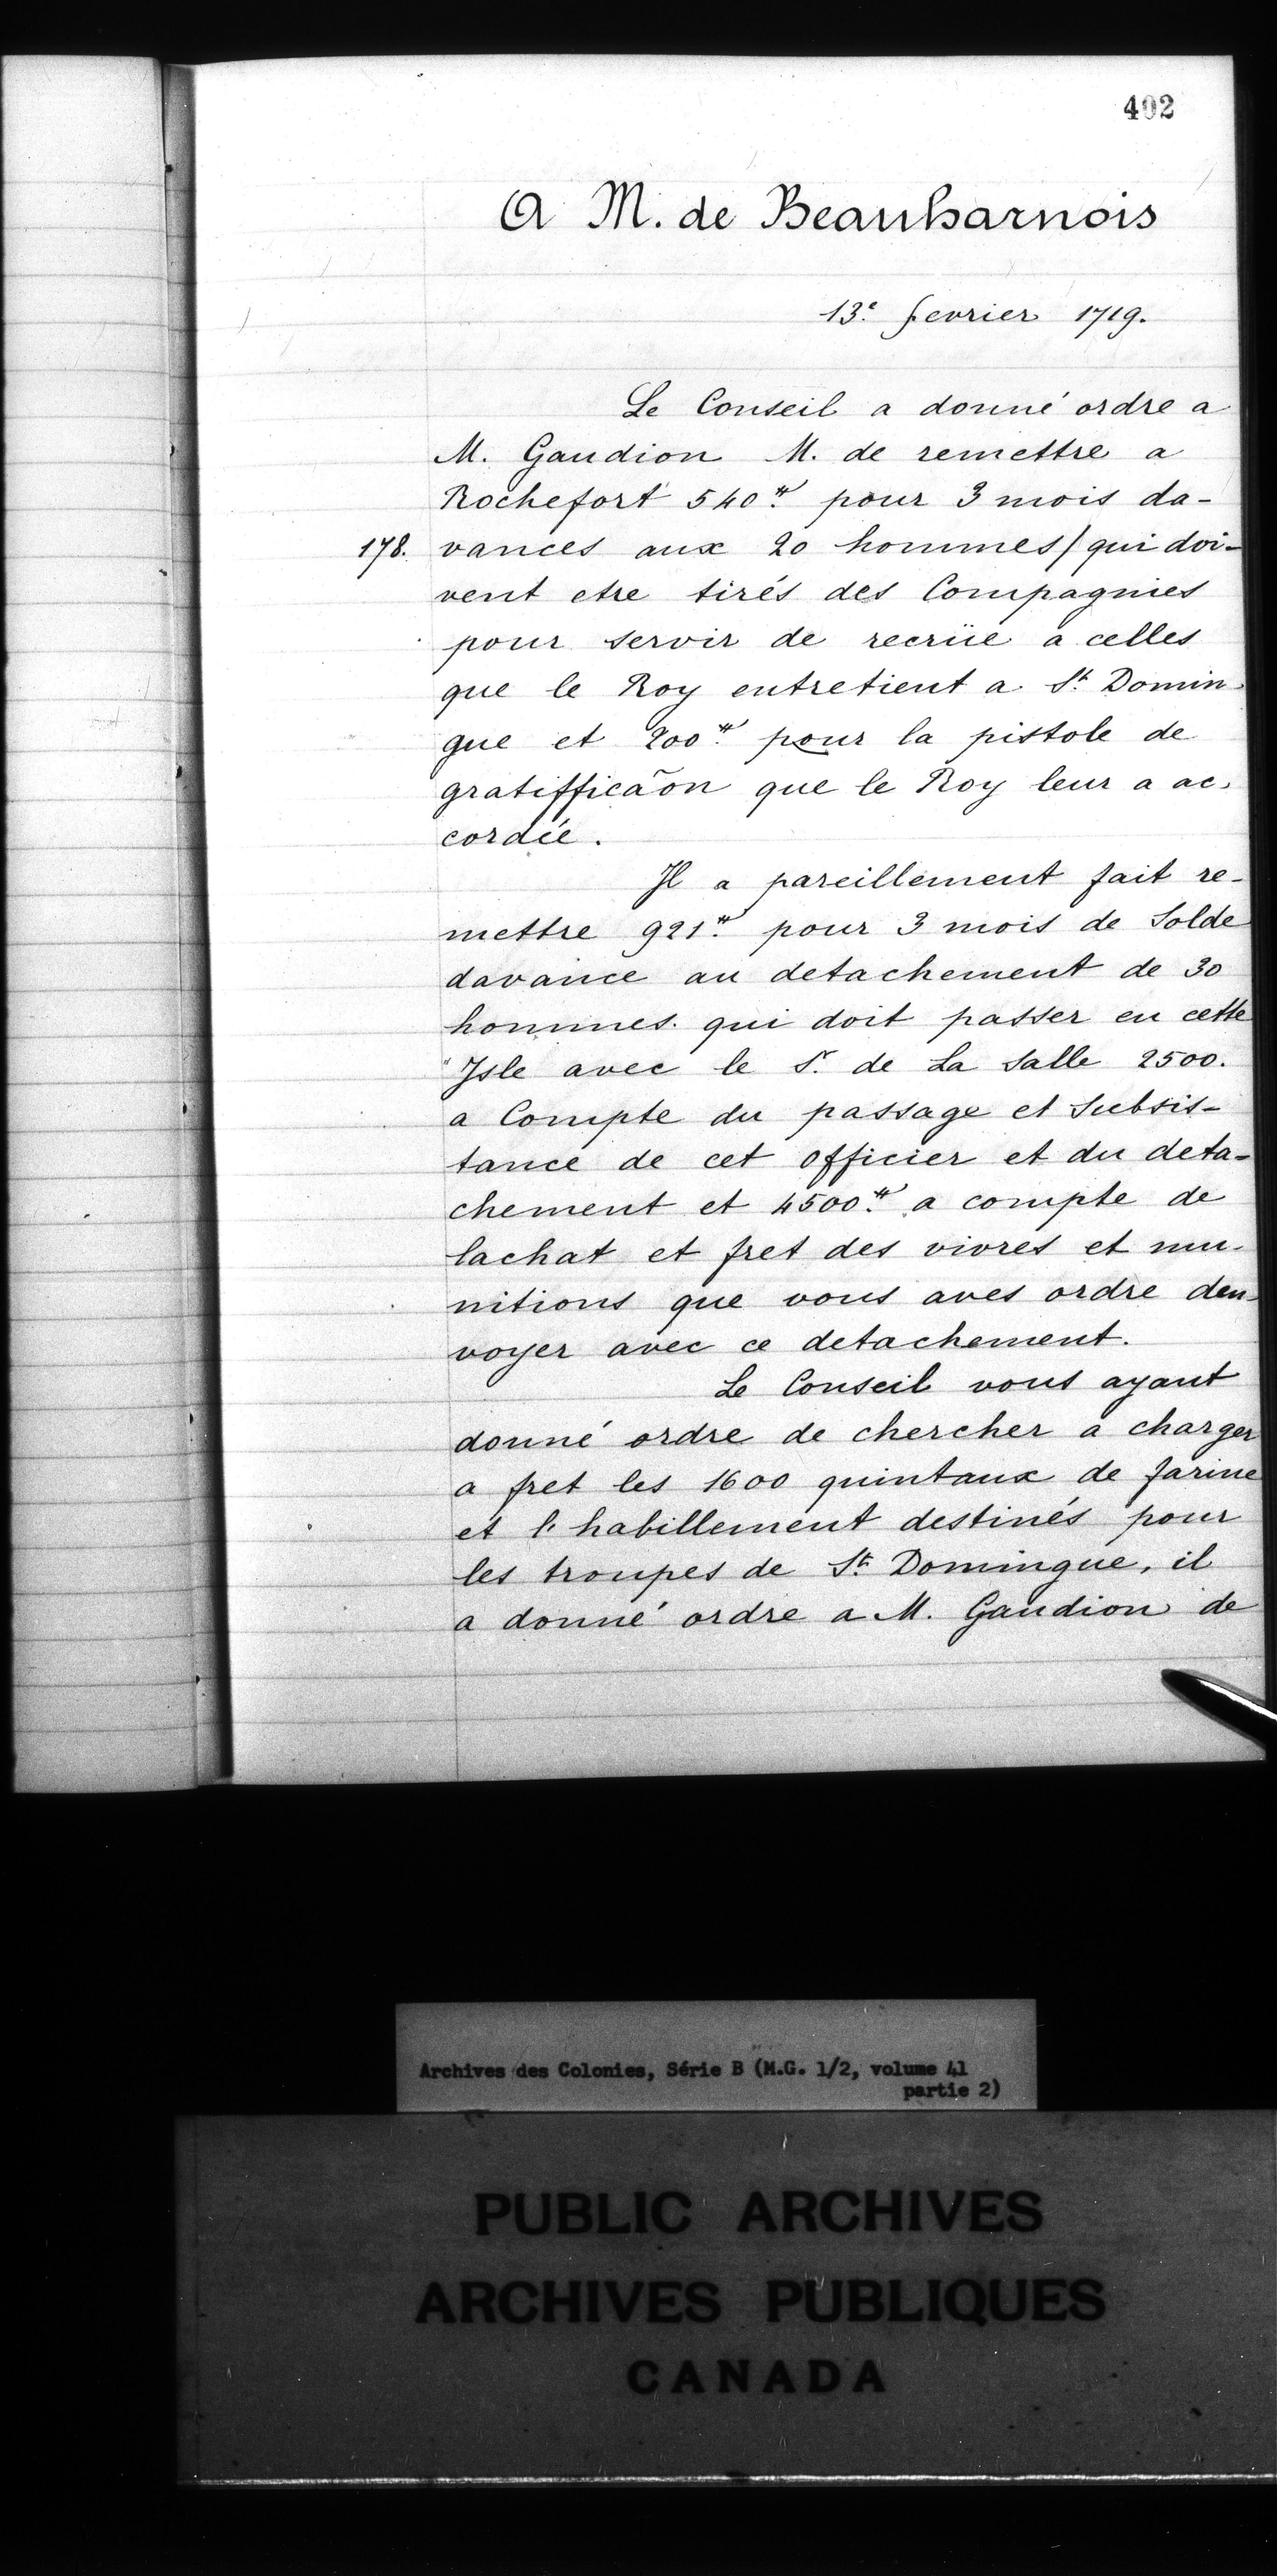 402
A M. de Beauharnois
13e. fevrier 1719.
Le Conseil a donné ordre a
M. Gaudion M. de remettre a
Rochefort 540 ₶ pour 3 mois da-
178. vances aux 20 hommes/qui doi-
vent etre tirés des Compagnies
pour servir de recrüe a celles
que le Roy entretient a St. Domin-
gue et 200 ₶ pour la pistole de
gratifficaõn que le Roy leur a ac-
cordée.
Il a pareillement fait re-
mettre 921 ₶ pour 3 mois de Solde
davance au detachement de 30
hommes qui doit passer en cette
Isle avec le Sr. de La Salle 2500.
a Compte du passage et Subsis-
tance de cet officier et du deta-
chement et 4500 ₶ a compte de
lachat et fret des vivres et mu-
nitions que vous aves ordre den-
voyer avec ce detachement.
Le Conseil vous ayant
donné ordre de chercher a charger
a fret les 1600 quintaux de farine
et l'habillement destinés pour
les troupes de St. Domingue, il
a donné ordre a M. Gaudion de
Archives des Colonies, Série B (M.G. 1/2, volume 41
partie 2)
PUBLIC ARCHIVES
ARCHIVES PUBLIQUES
CANADA